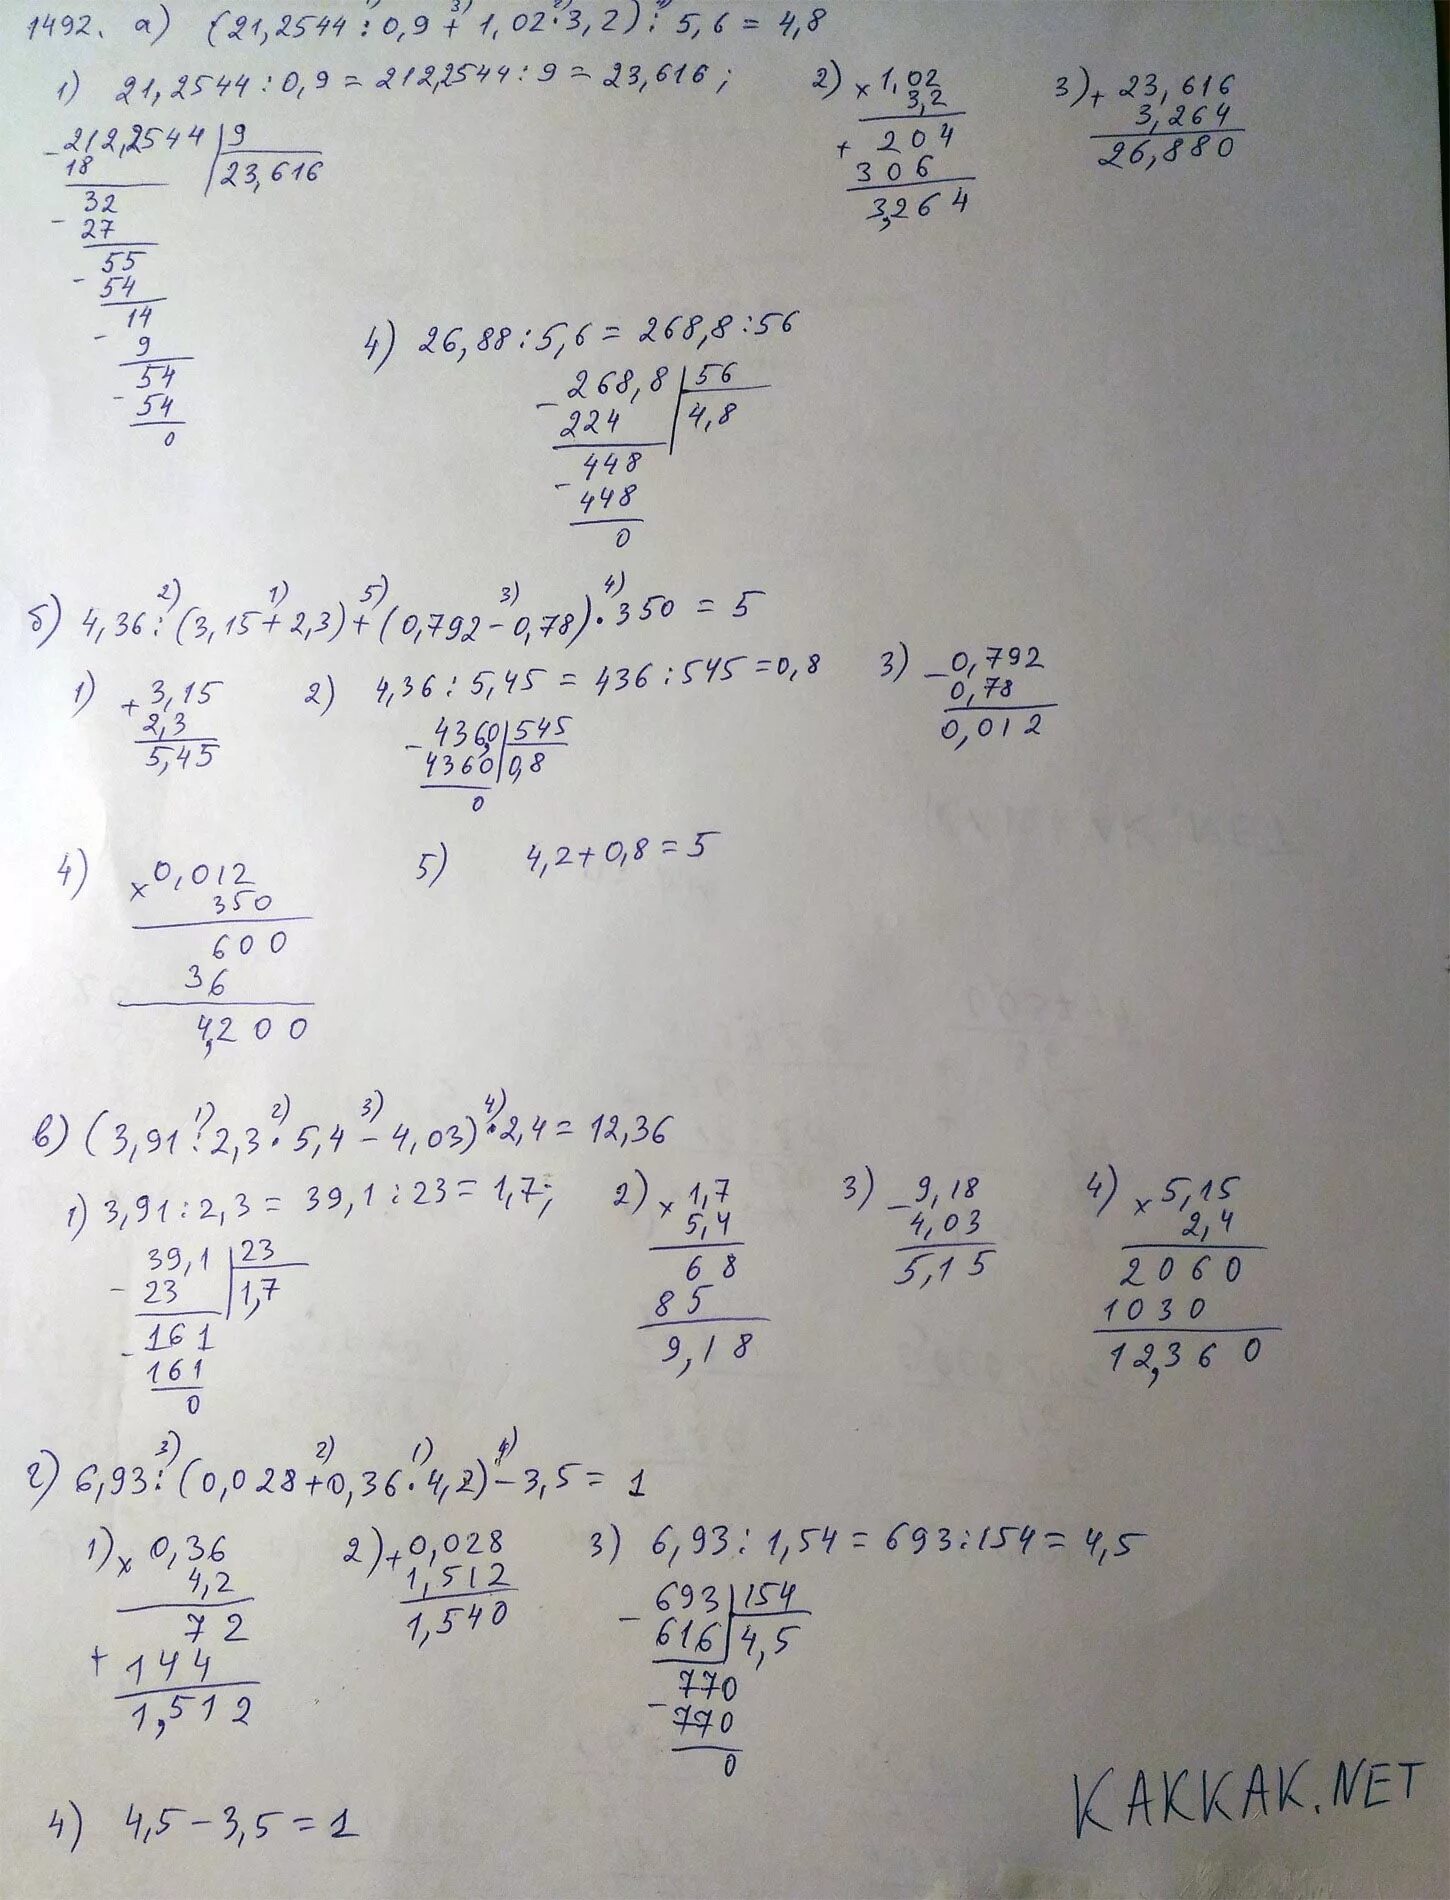 1492. а) (21,2544 : 0,9 + 1,02 · 3,2) : 5,6 = 4,8
1) 3) 2) 4)
1) 21,2544 : 0,9 = 212,2544 : 9 = 23,616 ;
- 212,2544 | 9
18 | 23,616
32
- 27
55
- 54
14
- 9
54
- 54
0
2) × 1,02
3,2
204
+ 306
3,264
3) + 23,616
3,264
26,880
4) 26,88 : 5,6 = 268,8 : 56
- 268,8 | 56
224 | 4,8
448
- 448
0
2) 1) 5) 3) 4)
б) 4,36 : (3,15 + 2,3) + (0,792 - 0,78) · 350 = 5
1) + 3,15
2,3
5,45
2) 4,36 : 5,45 = 436 : 545 = 0,8
- 436,0 | 545
4360 | 0,8
0
3) - 0,792
0,78
0,012
4) × 0,012
350
600
36
4,200
5) 4,2 + 0,8 = 5
1) 2) 3) 4)
в) (3,91 : 2,3 · 5,4 - 4,03) · 2,4 = 12,36
1) 3,91 : 2,3 = 39,1 : 23 = 1,7 ;
- 39,1 | 23
23 | 1,7
161
- 161
0
2) × 1,7
5,4
68
85
9,18
3) - 9,18
4,03
5,15
4) × 5,15
2,4
2060
1030
12,360
3) 2) 1) 4)
г) 6,93 : (0,028 + 0,36 · 4,2) - 3,5 = 1
1) × 0,36
4,2
72
+ 144
1,512
2) + 0,028
1,512
1,540
3) 6,93 : 1,54 = 693 : 154 = 4,5
- 693 | 154
616 | 4,5
770
- 770
0
4) 4,5 - 3,5 = 1
KAKKAK.NET